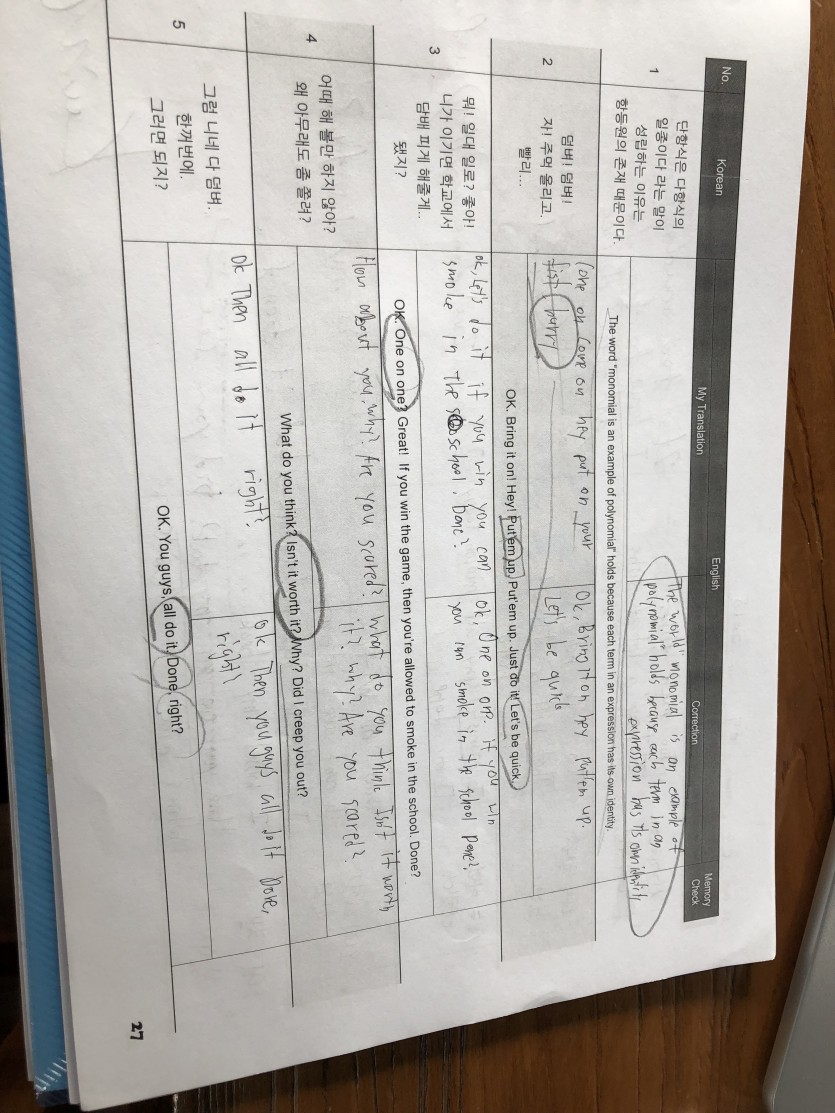 No.
Korean
English
My Translation
Correction
Memory
Check
1
단항식은 다항식의
일종이다 라는 말이
성립하는 이유는
항등원의 존재 때문이다.
The world "monomial is an example of
polynomial" holds because each term in an
expression has its own identity
The word "monomial is an example of polynomial" holds because each term in an expression has its own identity.
2
덤벼! 덤벼!
자! 주먹 올리고.
빨리...
Come on Come on hey put on your
fist hurry
Ok, Bring it on hey put'em up.
Let's be quick
OK. Bring it on! Hey! Put'em up, Put'em up. Just do it! Let's be quick.
3
뭐! 일대 일로? 좋아!
니가 이기면 학교에서
담배 피게 해줄게..
됐지?
ok, Let's do it if you win you can
smoke in the school. Done?
Ok, One on one. if you win
you can smoke in the school Done?
OK. One on one? Great! If you win the game, then you're allowed to smoke in the school. Done?
4
어때 해 볼만 하지 않아?
왜 아무래도 좀 쫄려?
How about you. why? Are you scared?
What do you think Isn't it worth
it? why? Are you scared?
What do you think? Isn't it worth it? Why? Did I creep you out?
5
그럼 니네 다 덤벼.
한꺼번에.
그러면 되지?
Ok Then all do it right?
Ok Then you guys all do it Done,
right?
OK. You guys, all do it. Done, right?
27